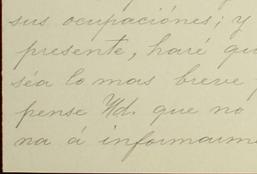 sus ocupaciónes; y
presente, haré qu
séa lo mas breve
pense Ud. que no
na á informarm